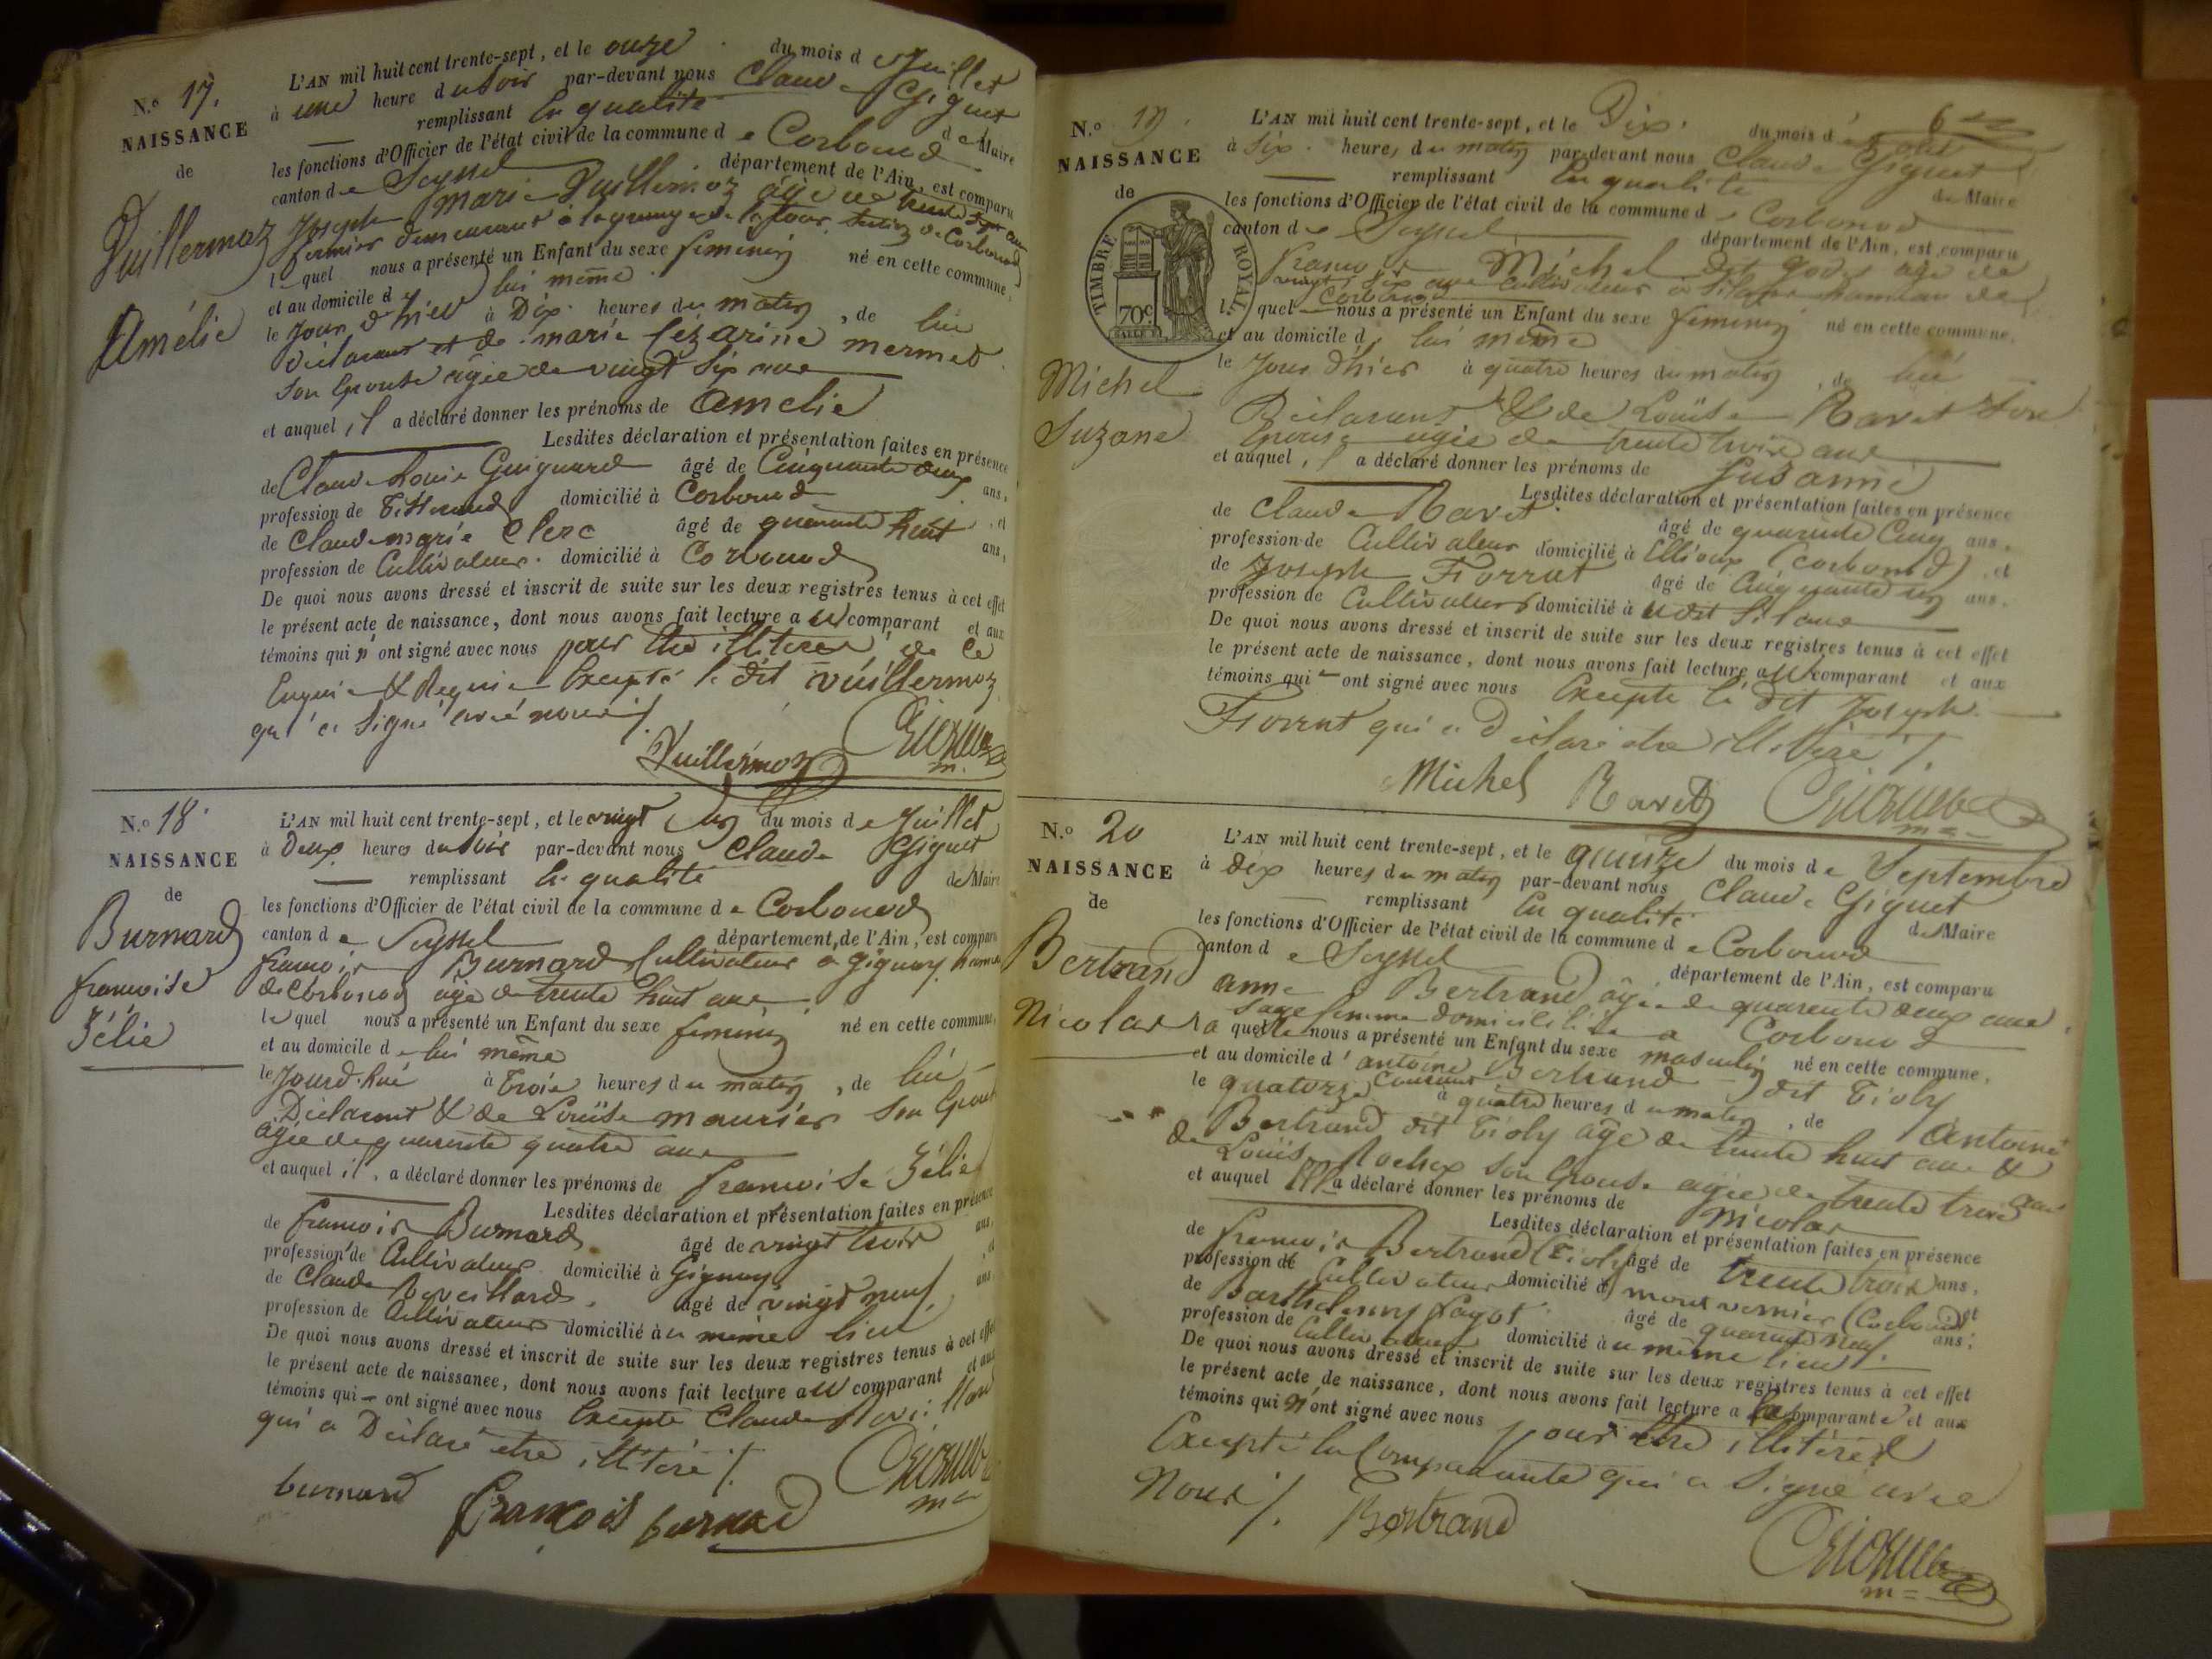 N.o 17.
NAISSANCE
de
Vuillermoz
Amélie
L'AN mil huit cent trente-sept, et le onze du mois d Juillet
à une heure du soir par-devant nous Claude Gignet
remplissant en qualité de Maire
les fonctions d'Officier de l'état civil de la commune de Corbonod
canton de Seyssel département de l'Ain, est comparu
Joseph Marie Vuillermoz âgé de trente ans
fermier demeurant à la grange de la tour, de Corbonod
lequel nous a présenté un Enfant du sexe feminin né en cette commune,
et au domicile de lui même
le jour d'hier à Dix heures du matin, de lui
déclarant et de marie Cézarine mermet
son épouse âgée de vingt six ans
et auquel il a déclaré donner les prénoms de Amelie
Lesdites déclaration et présentation faites en présence
de Claude Louis Guignard âgé de Cinquante deux ans,
profession de Tisserand domicilié à Corbonod, et
de Claude marie Clerc âgé de quarante huit ans,
profession de Cultivateur domicilié à Corbonod
De quoi nous avons dressé et inscrit de suite sur les deux registres tenus à cet effet
le présent acte de naissance, dont nous avons fait lecture au comparant et aux
témoins qui n'ont signé avec nous pour être illiteres de ce
Enquis & Requis Excepté le dit vuillermoz
qui a signé avec nous ./.
Vuillermoz
N.o 18.
NAISSANCE
de
Burnard
francoise
Zélie
L'AN mil huit cent trente-sept, et le vingt un du mois de Juillet
à Deux heures du soir par-devant nous Claude Gignet
remplissant en qualité de Maire
les fonctions d'Officier de l'état civil de la commune de Corbonod
canton de Seyssel département de l'Ain, est comparu
francois Burnard Cultivateur a Gignay hameau
de Corbonod âgé de trente huit ans
lequel nous a présenté un Enfant du sexe feminin né en cette commune,
et au domicile de lui même
le Jourd'hui à trois heures du matin, de lui
Déclarant & de Louise meurier son Epouse
âgée de quarente quatre ans
et auquel il, a déclaré donner les prénoms de francoise Zélie
Lesdites déclaration et présentation faites en présence
de francois Burnard âgé de vingt trois ans,
profession de Cultivateur domicilié à Gignay et
de Claude Reveillard âgé de vingt neuf ans,
profession de Cultivateur domicilié au même lieu
De quoi nous avons dressé et inscrit de suite sur les deux registres tenus à cet effet
le présent acte de naissance, dont nous avons fait lecture au comparant et aux
témoins qui ont signé avec nous Excepté Claude
qui a Déclaré etre illitéré ./.
burnard françois burnard
N.o 19.
NAISSANCE
de
TIMBRE ROYAL
70c
Michel
Suzane
6
L'AN mil huit cent trente-sept, et le Dix du mois d'Aout
à Six heures du matin par-devant nous Claude Gignet
remplissant en qualité de Maire
les fonctions d'Officier de l'état civil de la commune de Corbonod
canton de Seyssel département de l'Ain, est comparu
francois Michel dit âgé de
vingt six ans cultivateur a Silans hameau de
Corbonod
lequel nous a présenté un Enfant du sexe feminin né en cette commune,
et au domicile de lui même
le Jour d'hier à quatre heures du matin, de lui
Déclarant & de Louise Ravet son
Epouse agée de trente trois ans
et auquel, il a déclaré donner les prénoms de Susanne
Lesdites déclaration et présentation faites en présence
de Claude Ravet âgé de quarente Cinq ans,
profession de Cultivateur domicilié à (Corbonod), et
de Joseph Forrat âgé de Cinquante un ans,
profession de Cultivateur domicilié à udit Silans
De quoi nous avons dressé et inscrit de suite sur les deux registres tenus à cet effet
le présent acte de naissance, dont nous avons fait lecture au comparant et aux
témoins qui ont signé avec nous Excepté le dit Joseph
Forrat qui a Déclaré etre illitéré ./.
Michel Ravet
N.o 20
NAISSANCE
de
Bertrand
Nicolas
L'AN mil huit cent trente-sept, et le quinze du mois de Septembre
à dix heures du matin par-devant nous Claude Gignet
remplissant en qualité de Maire
les fonctions d'Officier de l'état civil de la commune de Corbonod
canton de Seyssel département de l'Ain, est comparu
anne Bertrand âgée de quarente deux ans
sage femme domiciliée a Corbonod
laquelle nous a présenté un Enfant du sexe masculin né en cette commune,
et au domicile d'antoine Bertrand dit Tioly
le quatorze courant à quatre heures du matin, de Antoine
Bertrand dit Tioly âgé de trente huit ans &
de Louise Rochex son Epouse agée de trente trois ans
et auquel Elle a déclaré donner les prénoms de Nicolas
Lesdites déclaration et présentation faites en présence
de francois Bertrand (Tioly) âgé de trente trois ans,
profession de Cultivateur domicilié à mont vernier (Corbonod) et
de Barthelemy fayot âgé de quarente neuf ans,
profession de Cultivateur domicilié au même lieu
De quoi nous avons dressé et inscrit de suite sur les deux registres tenus à cet effet
le présent acte de naissance, dont nous avons fait lecture a la comparante et aux
témoins qui n'ont signé avec nous pour être illitéré
Excepté la Comparante qui a signé avec
Nous ./. Bertrand